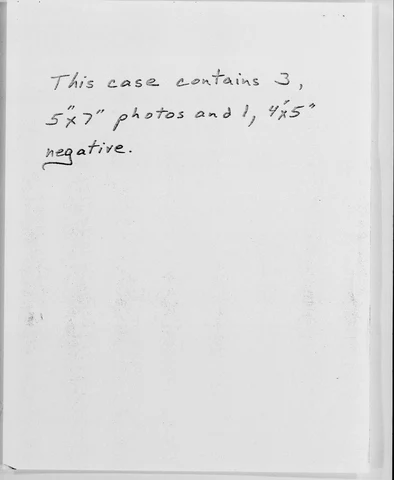 This case contains 3,
5"x7" photos and 1, 4"x5"
negative.